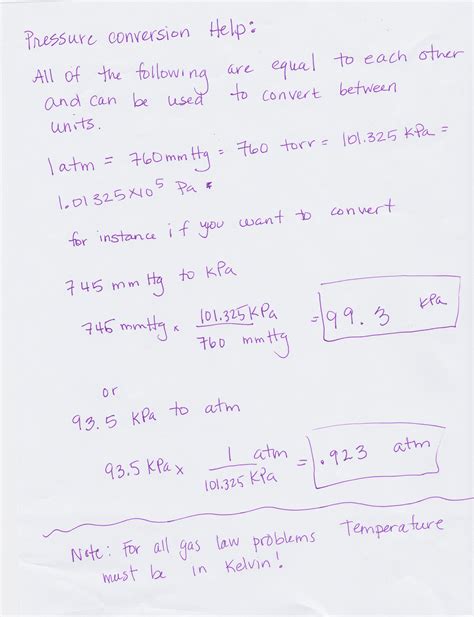 Pressure conversion Help:
All of the following are equal to each other
and can be used to convert between
units.
1 atm = 760 mm Hg = 760 torr = 101.325 KPa =
1.01325X10⁵ Pa
for instance if you want to convert
745 mm Hg to KPa
745 mmHg x 101.325 KPa / 760 mmHg = 99.3 KPa
or
93.5 KPa to atm
93.5 KPa x 1 atm / 101.325 KPa = .923 atm
Note: For all gas law problems Temperature
must be in Kelvin!